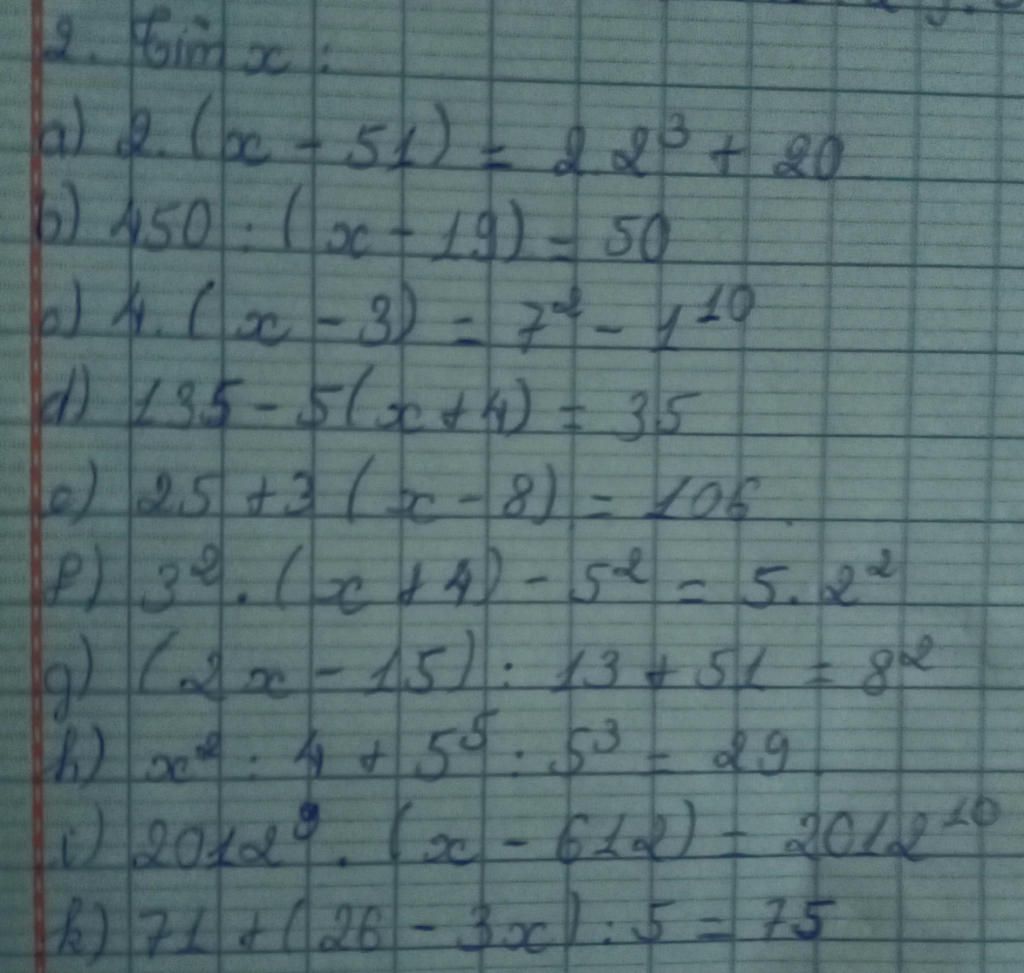 2. Tìm x :
a) 2. (x - 51) = 2.2³ + 20
b) 450 : (x - 19) = 50
c) 4. (x - 3) = 7² - 1¹⁰
d) 135 - 5(x + 4) = 35
e) 25 + 3 (x - 8) = 106
f) 3² . (x + 4) - 5² = 5. 2²
g) (2x - 15) : 13 + 51 = 8²
h) x² : 4 + 5⁵ : 5³ = 29
i) 2012⁹ . (x - 612) = 2012¹⁰
k) 71 + (26 - 3x) : 5 = 75